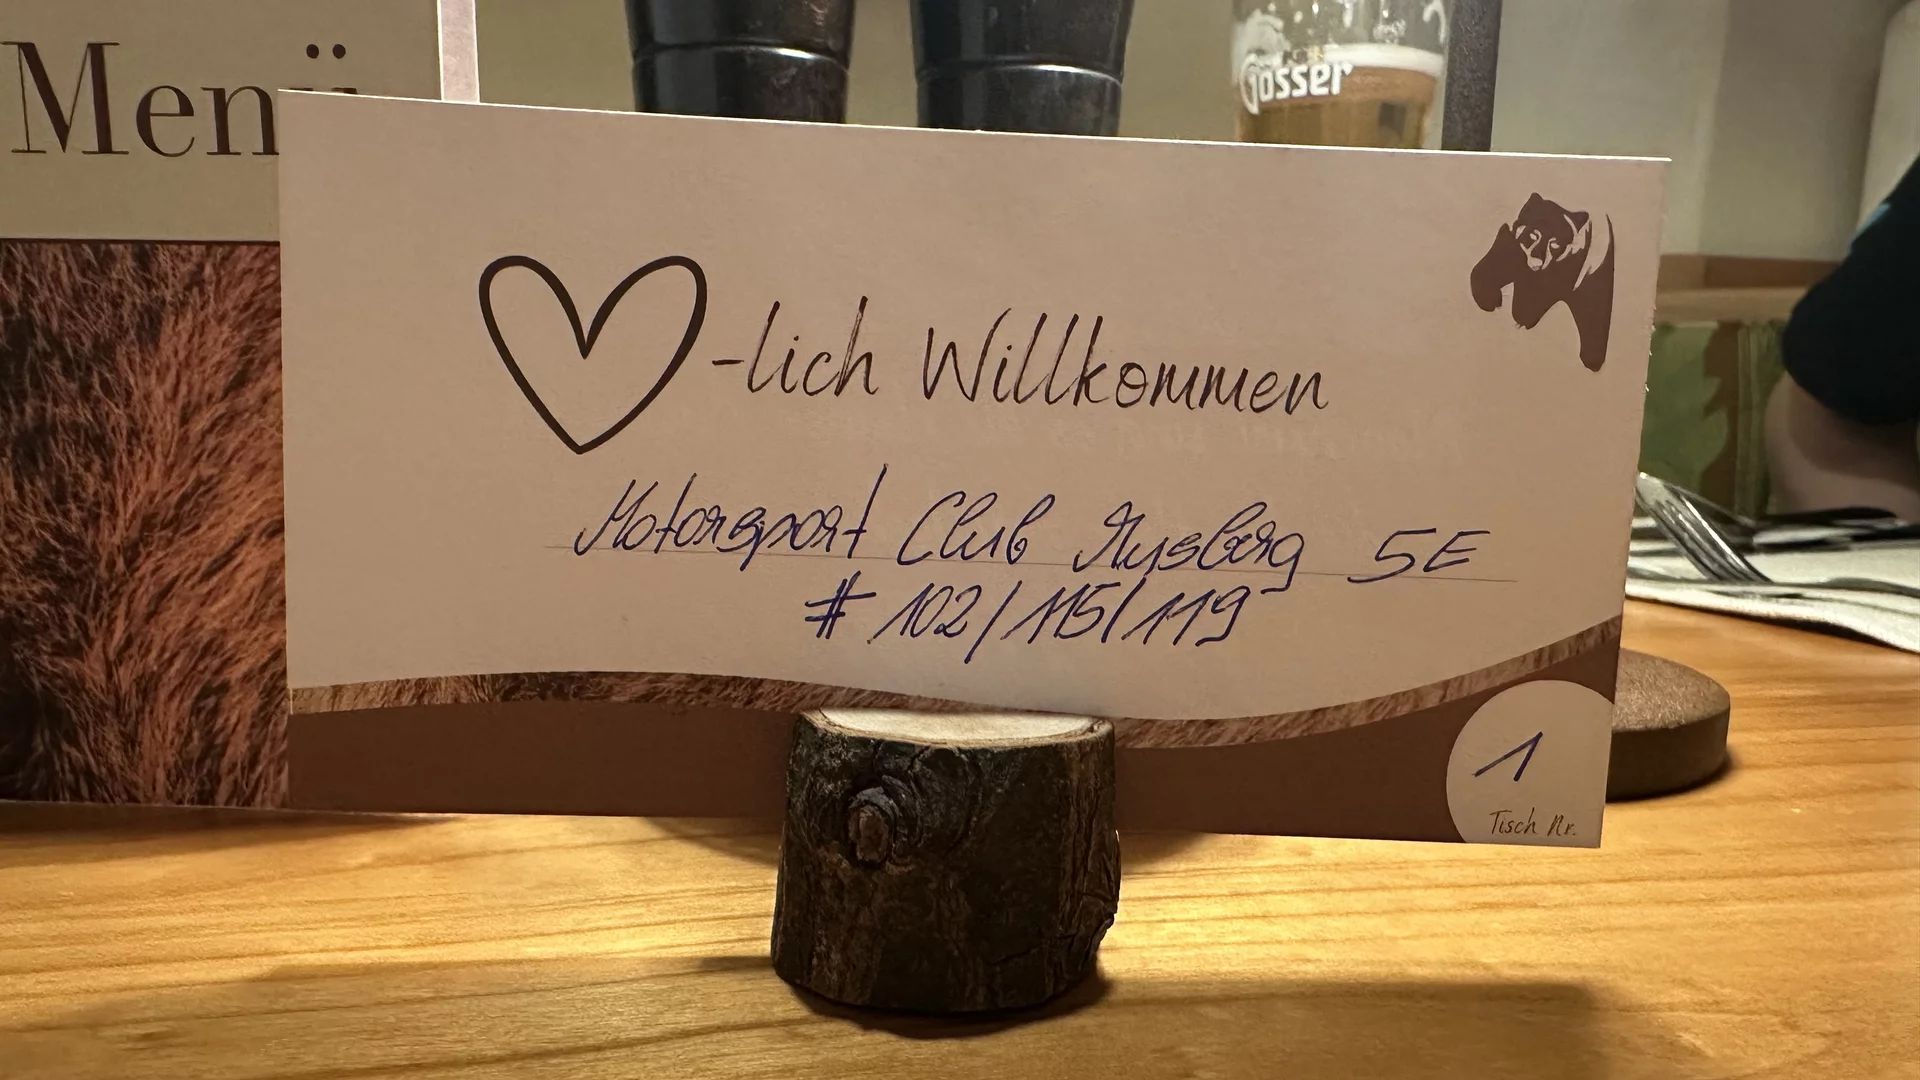 Menü
Gösser
-lich Willkommen
Motorsport Club Mysberg 5E
# 102/115/119
1
Tisch Nr.